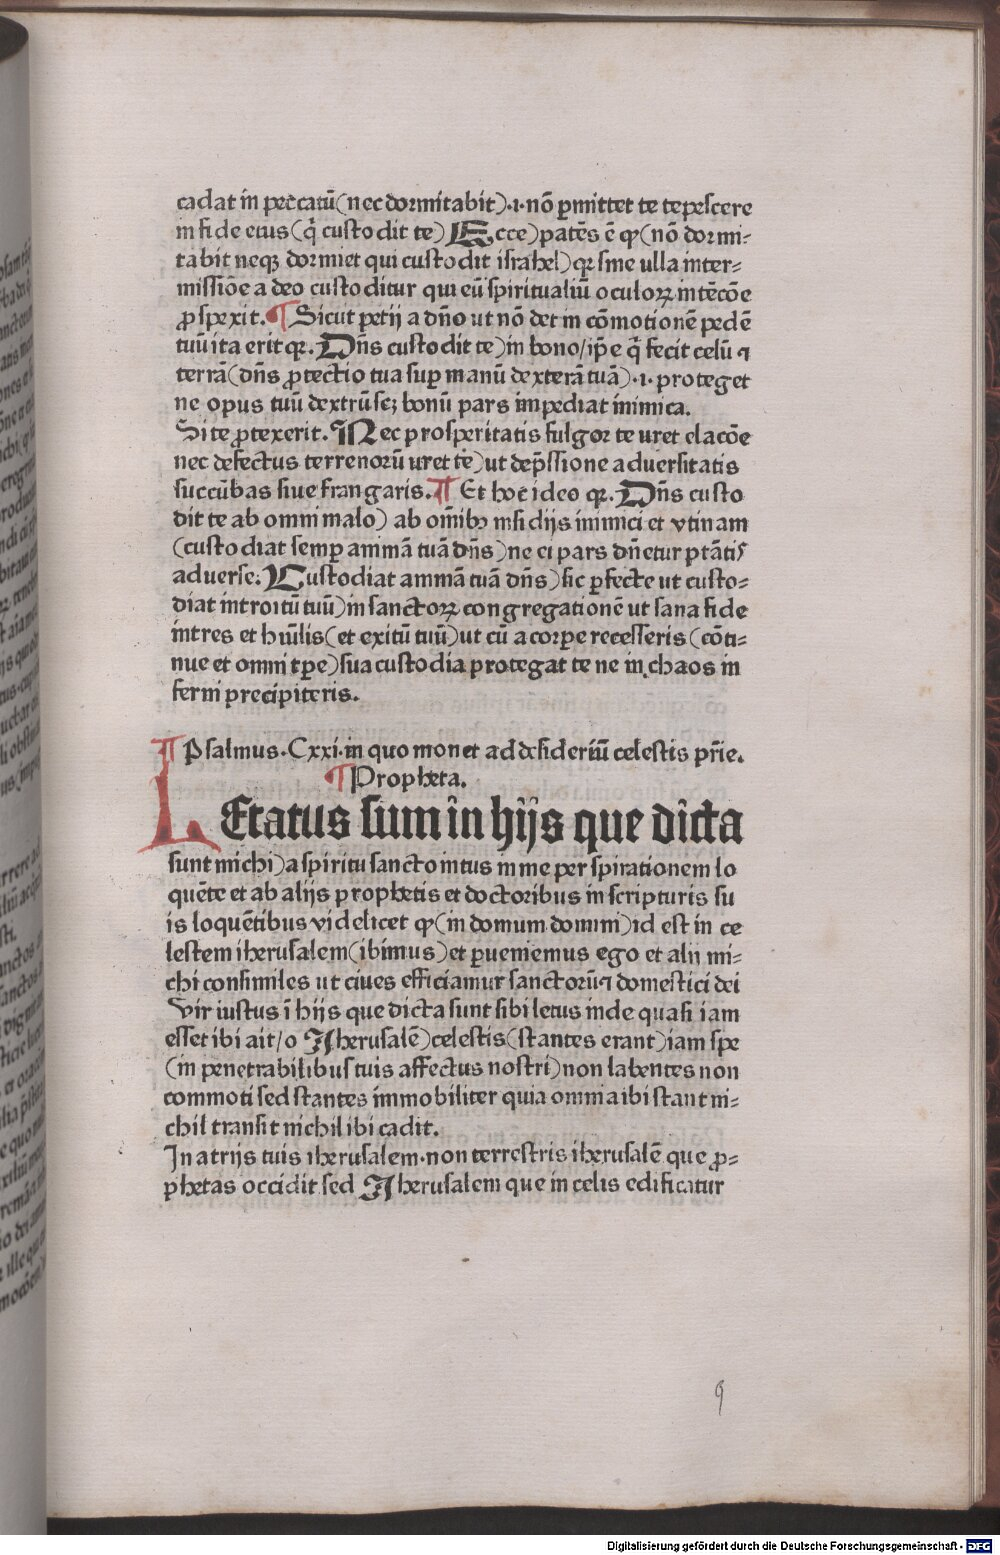 cadat in peccatū(nec dormitabit).i.nō ꝑmittet te tepescere
in fide eius(q̄ custodit te)Ecce)patēs ē ꝙ(nō dormi-
tabit neqꝫ dormiet qui custodit israhel)qꝛ sine ulla inter-
missiōe a deo custoditur qui eū spiritualiū oculoꝝ intēcōe
ꝓspexit.¶Sicut petij a dño ut nō det in cōmotionē pedē
tuū ita erit qꝛ.Dñs custodit te)in bono/ip̄e q̄ fecit celū ⁊
terrā(dñs ꝓtectio tua suꝑ manū dexterā tuā).i.proteget
ne opus tuū dextrū seꝫ bonū pars impediat inimica.
Si te ꝓtexerit.Nec prosperitatis fulgor te uret elacōe
nec defectus terrenorū uret te)ut dep̄ssione aduersitatis
succūbas siue frangaris.¶Et hoc ideo qꝛ.Dñs custo
dit te ab omni malo)ab om̄ibꝰ insidijs inimici et vtinam
(custodiat semꝑ animā tuā dñs)ne ei pars dn̄etur ptātis
aduerse.Custodiat animā tuā dñs)sic ꝑfecte ut custo-
diat introitū tuū)in sanctoꝝ congregationē ut sana fide
intres et hūilis(et exitū tuū)ut cū a corꝑe recesseris(cōti-
nue et omni tꝑe)sua custodia protegat te ne in chaos in
ferni precipiteris.
¶Psalmus.Cxxi.in quo monet ad desideriū celestis pr̄ie.
¶Propheta.
LEtatus sum in hijs que dicta
sunt michi)a spiritu sancto intus in me per spirationem lo
quēte et ab alijs prophetis et doctoribus in scripturis su
is loquētibus videlicet ꝙ(in domum domini)id est in ce
lestem iherusalem(ibimus)et ꝑueniemus ego et alij mi-
chi consimiles ut ciues efficiamur sanctorū⁊ domestici dei
Vir iustus ī hijs que dicta sunt sibi letus inde quasi iam
esset ibi ait/o Iherusalē)celestis(stantes erant)iam spe
(in penetrabilibus tuis affectus nostri)non labentes non
commoti sed stantes immobiliter quia omnia ibi stant ni-
chil transit nichil ibi cadit.
In atrijs tuis iherusalem.non terrestris iherusalē que ꝓ-
phetas occidit sed Iherusalem que in celis edificatur
9
Digitalisierung gefördert durch die Deutsche Forschungsgemeinschaft - DFG